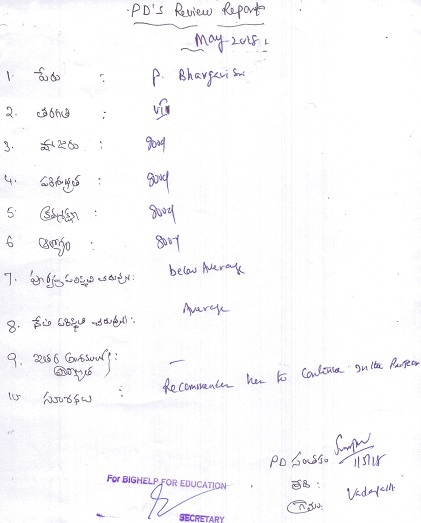 PD'S Review Report
May-2018
1. పేరు : P. Bhargavi Sri
2. తరగతి : VIII
3. హాజరు : Good
4. పరిశుభ్రత : Good
5. క్రమశిక్షణ : Good
6. ఆరోగ్యం : Good
7. పరిస్థితి చదువు: below Average
8. పరిస్థితి చదువు: Average
9. ఇతర : —
10 సూచనలు : Recommender her to Continue in the
PD సంతకం
1/5/18
For BIGHELP FOR EDUCATION
తేది :
గ్రామం: Vadapalli
SECRETARY